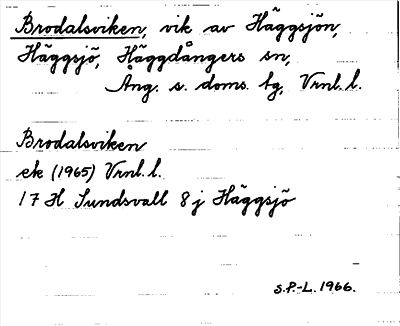 Brodalsviken, vik av Häggsjön,
Häggsjö, Häggdångers sn,
Ång. s. doms. tg, Vrnl. l.
Brodalsviken
ek (1965) Vrnl. l.
17 H Sundsvall 8 j Häggsjö
S.P.-L. 1966.